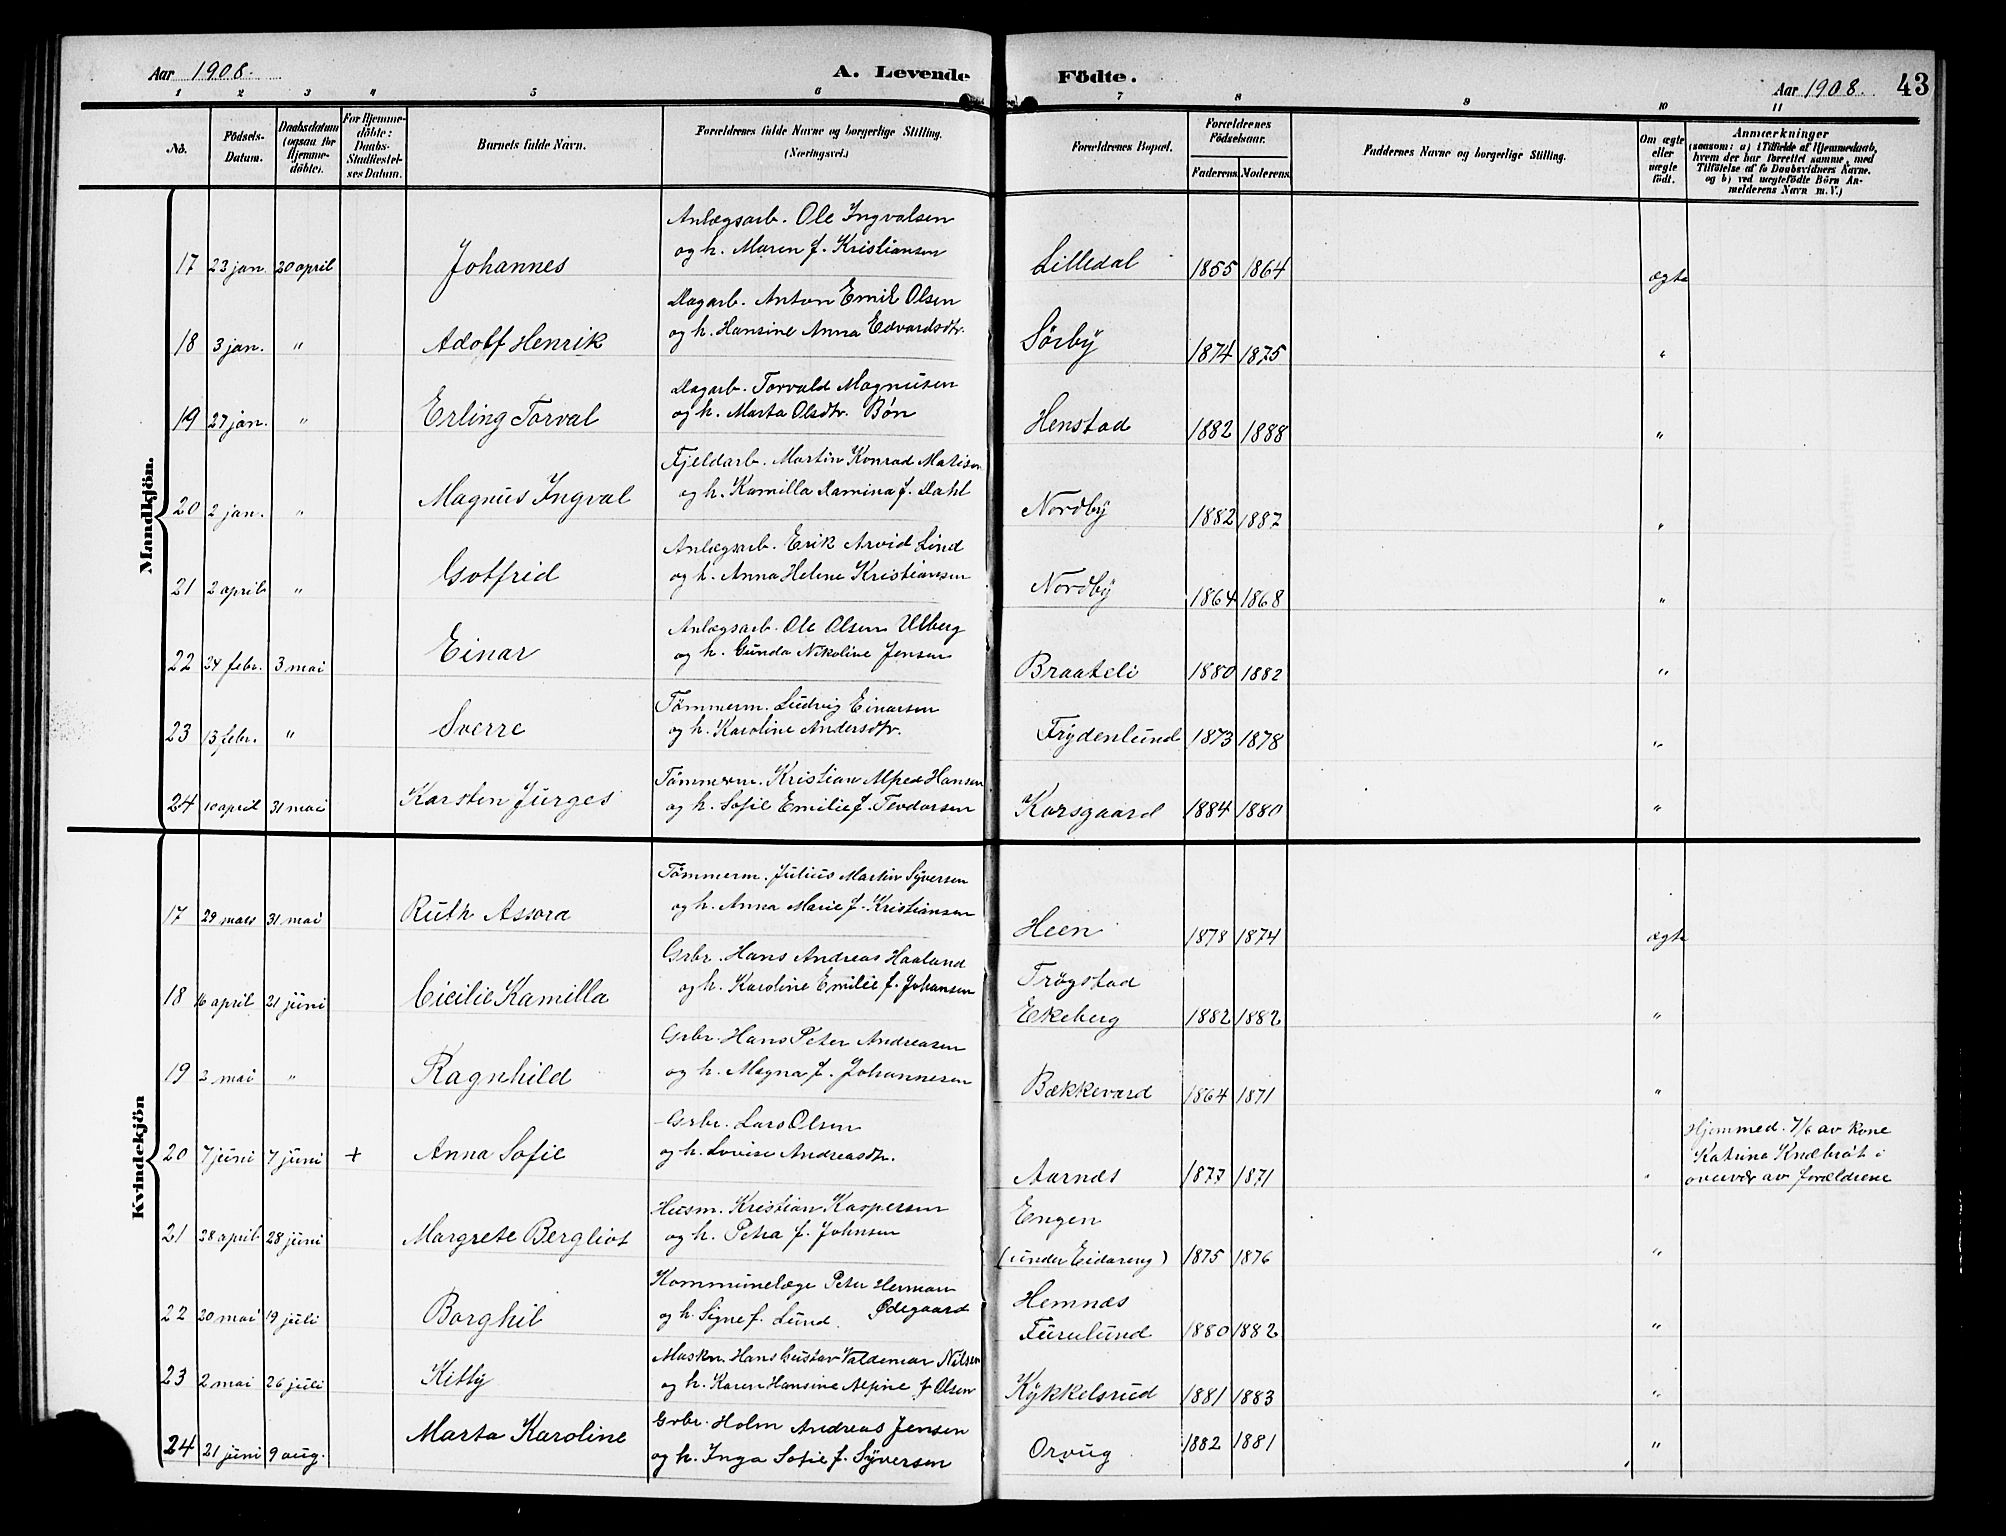 Aar 1908.
A. Levende Födte.
Aar 1908. 43
1 2 3 4 5 6 7 8 9 10 11
No.
Födsels-Datum.
Daabsdatum (ogsaa for Hjemme-döbte).
For Hjemme-döbte: Daabs-Stadfæstel-ses Datum.
Barnets fulde Navn.
Forældrenes fulde Navne og borgerlige Stilling. (Næringsvei.)
Forældrenes Bopæl.
Forældrenes Födselsaar.
Faderens. Moderens.
Faddernes Navne og borgerlige Stilling.
Om ægte eller uægte födt.
Anmærkninger
(saasom: a) i Tilfælde af Hjemmedaab, hvem der har forrettet samme, med Tilföielse af to Daabsvidners Navne. og b) ved uægtefödte Börn An-melderens Navn m. V.)
Mandkjön.
Anlægsarb. Ole Ingvalsen
17 23 jan. 20 april Johannes og h. Maren f. Kristiansen Lilledal 1855 1864 ægte
Dagarb. Anton Emil Olsen
18 3 jan. " Adolf Henrik og h. Hansine Anna Edvardsdtr. Sørby 1874 1875 "
Dagarb. Torvald Magnusen
19 27 jan. " Erling Torval og h. Marta Olsdtr. Bøn Henstad 1882 1888 "
Fjeldarb. Martin Konrad Matisen
20 2 jan. " Magnus Ingval og h. Kamilla Damina f. Dahl Nordby 1882 1887 "
Anlægsarb. Erik Arvid Lind
21 2 april " Gotfrid og h. Anna Helene Kristiansen Nordby 1864 1868 "
Anlægsarb. Ole Olsen Ulberg
22 24 febr. 3 mai Einar og h. Gunda Nikoline Jensen Braateli 1880 1882 "
Tømmerm. Ludvig Einarsen
23 13 febr. " Sverre og h. Karoline Andersdtr. Frydenlund 1873 1878 "
Tømmerm. Kristian Alfred Hansen
24 10 april 31 mai Karsten Jurges og h. Sofie Emilie f. Teodorsen Korsgaard 1884 1880 "
Kvindekjön
Tømmerm. Julius Martin Syversen
17 29 mars 31 mai Ruth Assora og h. Anna Marie f. Kristiansen Heen 1878 1874 ægte
Grbr. Hans Andreas Haaland Trøgstad
18 16 april 21 juni Cicilie Kamilla og h. Karoline Emilie f. Johansen Ekeberg 1882 1882 "
Grbr. Hans Peter Andreasen
19 2 mai " Ragnhild og h. Magna f. Johannesen Bækkevard 1864 1871 "
Grbr. Lars Olsen
20 7 juni 7 juni + Anna Sofie og h. Lovise Andreasdtr. Aarnes 1877 1871 "
Hjemmed. 7/6 av kone
Katrine Knebråt i
overvær av forældrene
Husm. Kristian Kaspersen Engen
21 28 april 28 juni Margrete Bergliot og h. Petra f. Johnsen (under Eidareng) 1875 1876 "
Kommunelæge Peter Herman Ødegaard Hemnæs
22 20 mai 19 juli Borghil og h. Signe f. Lund. Furulund 1880 1882 "
Maskn. Hans Gustav Valdemar Nilsen
23 2 mai 26 juli Kitty og h. Karen Hansine Alpine f. Olsen Kykkelsrud 1881 1883 "
Grbr. Holm Andreas Jensen
24 21 juni 9 aug. Marta Karoline og h. Inga Sofie f. Syversen Orvug 1882 1881 "